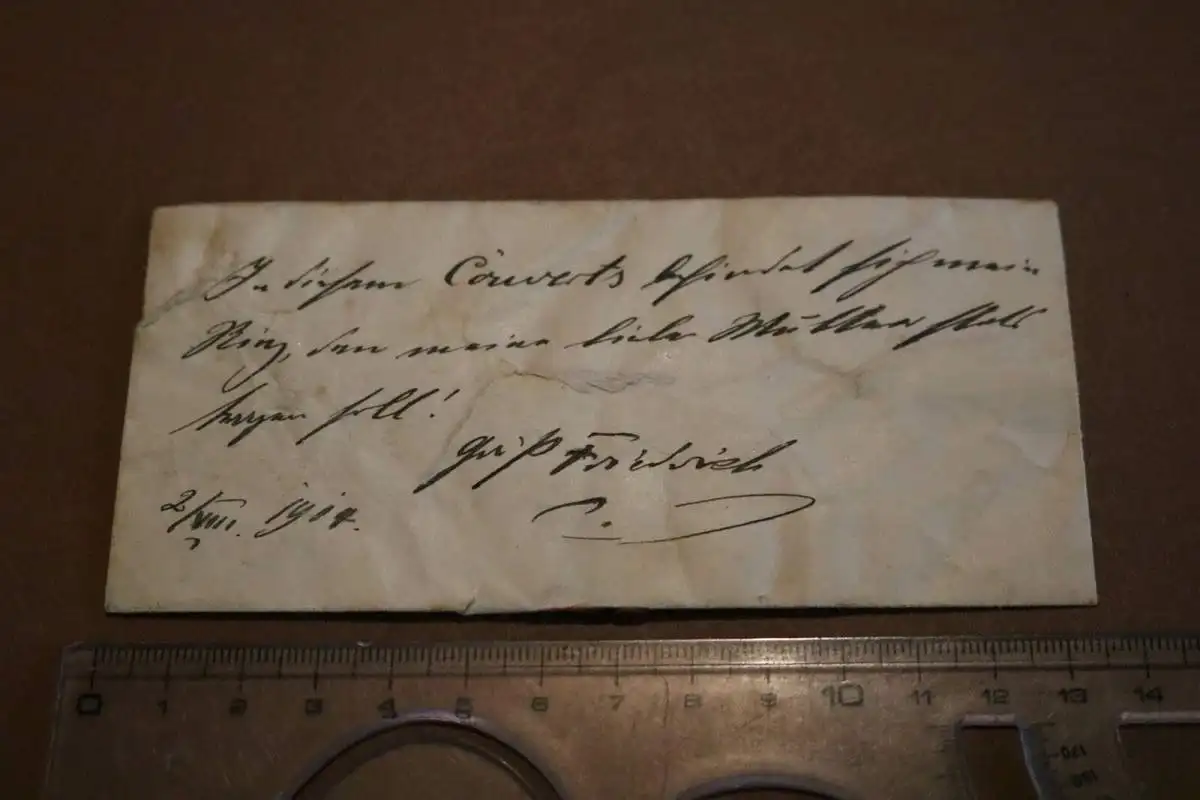 In diesem Couverts befindet sich mein
Ring, den meine liebe Mutter stets
tragen soll!
Gruß Friedrich
2/VIII. 1914.
0 1 2 3 4 5 6 7 8 9 10 11 12 13 14
170